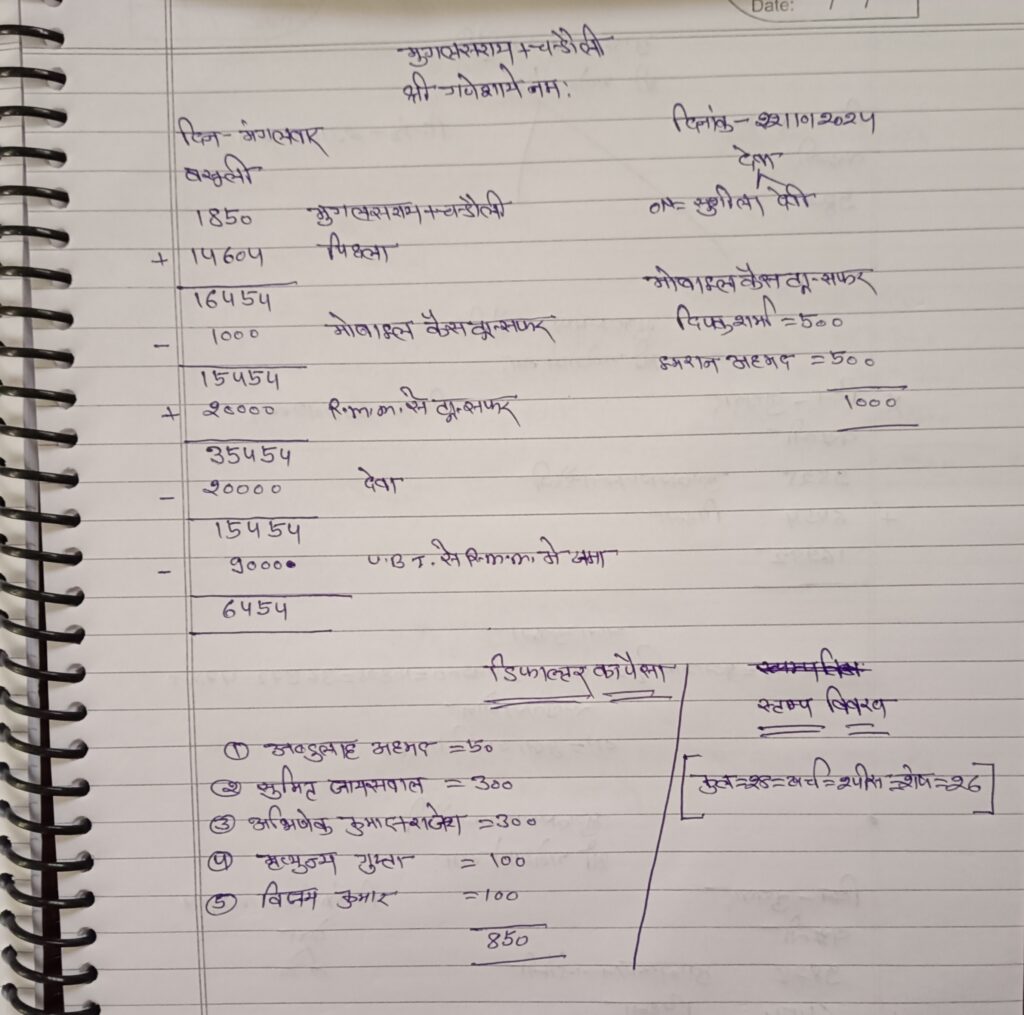 Date: / /
मुगलसराय + चन्दौली
श्री गणेशाये नमः
दिन - मंगलवार
दिनांक - 22/10/2024
वसूली
देवा
1850 मुगलसराय + चन्दौली
सुशीला देवी
+ 14604 पिछला
16454
मोबाइल कैस ट्रान्सफर
- 1000 मोबाइल कैस ट्रान्सफर
दिपक शर्मा = 500
15454
इमरान अहमद = 500
+ 20000 R.m.m. से ट्रान्सफर
1000
35454
- 20000 देवा
15454
- 9000 U.B.I. से R.m.m. मे जमा
6454
डिफाल्टर का पैसा
स्टाम्प विवरण
① अब्दुलाह अहमद = 50
② सुमित जायसवाल = 300
[कुल = 28 = खर्च = 2 पीस = शेष = 26]
③ अभिषेक कुमार/राजेश = 300
④ मृत्युन्जय गुप्ता = 100
⑤ विजय कुमार = 100
850